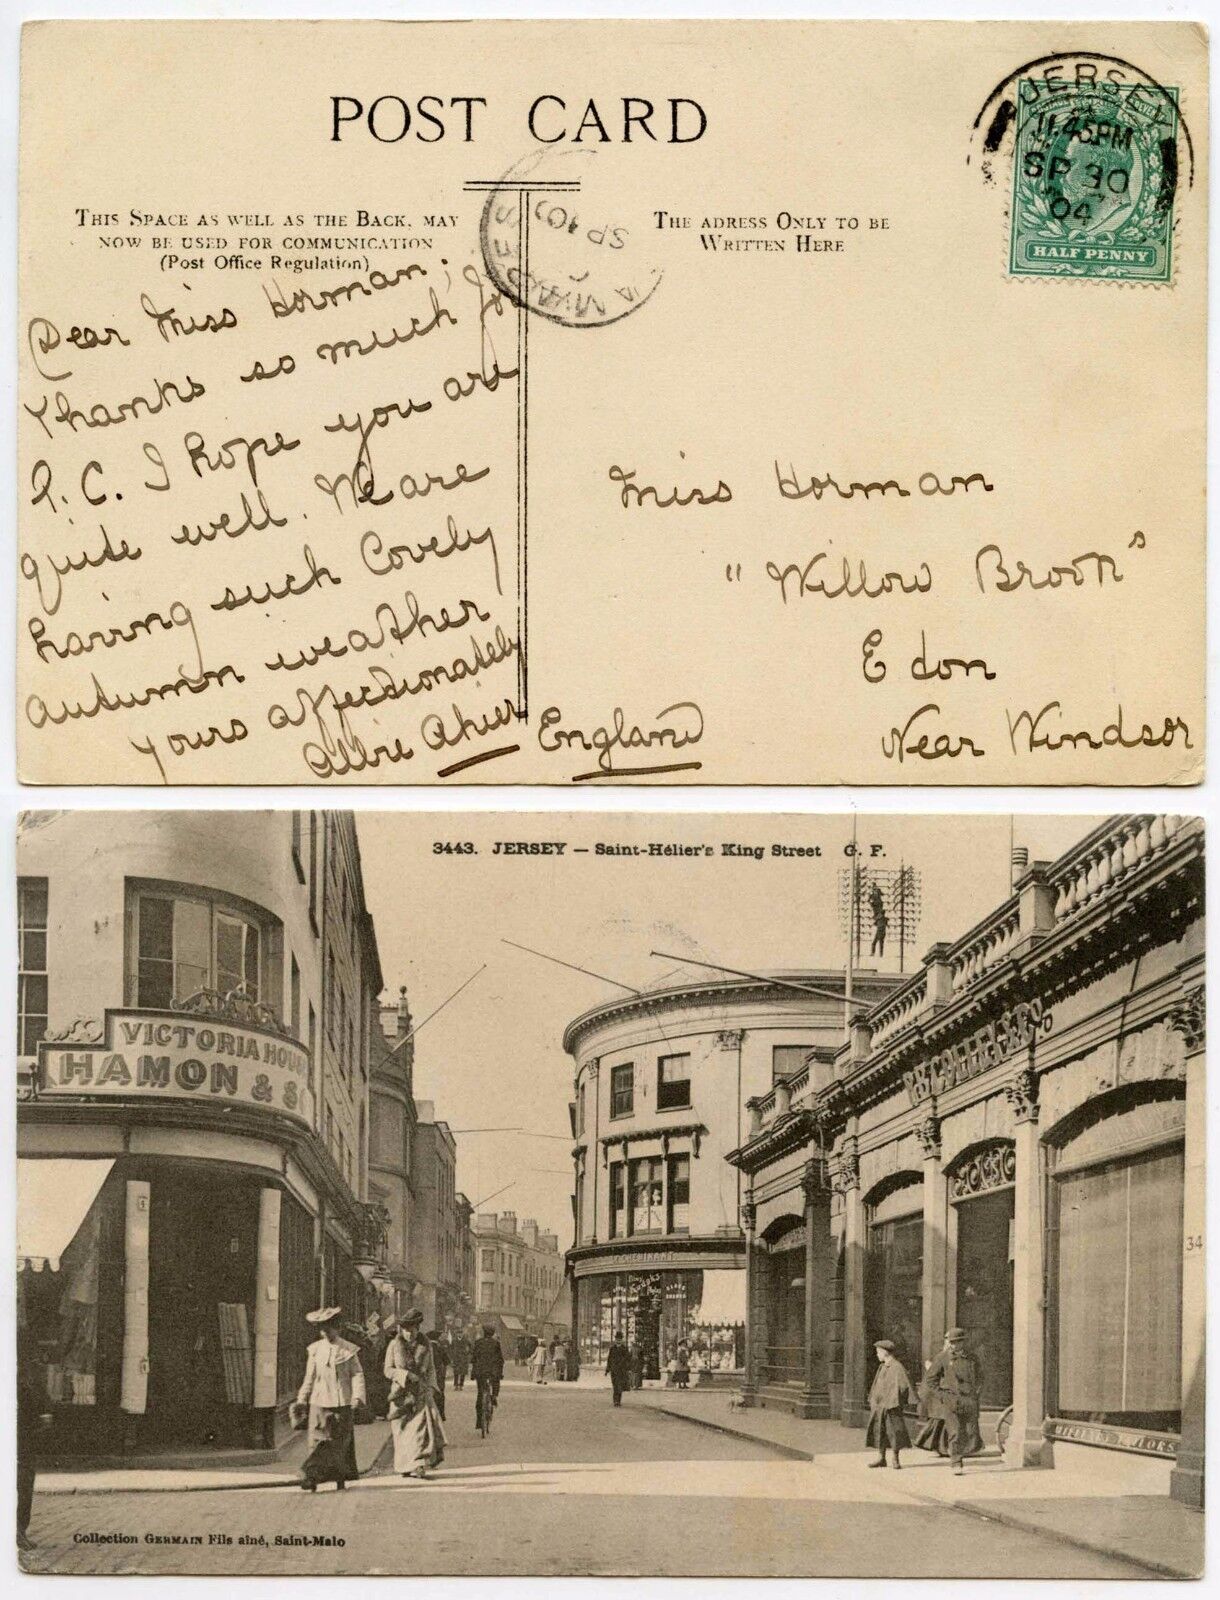 POST CARD
THIS SPACE AS WELL AS THE BACK, MAY
NOW BE USED FOR COMMUNICATION
(Post Office Regulation)
THE ADRESS ONLY TO BE
WRITTEN HERE
JERSEY
11.45PM
SP 30
04
HALF PENNY
SP
Dear Miss Horman;
Thanks so much for
P.C. I hope you are
quite well. We are
having such lovely
Autumn weather
Yours affectionately
Ahier
Miss Horman
"Willow Brook"
Edon
Near Windsor
England
3443. JERSEY — Saint-Hélier's King Street G. F.
VICTORIA HOU
HAMON & S
Kodaks
34
TAILORS
Collection GERMAIN Fils aîné, Saint-Malo